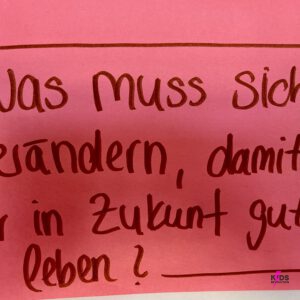 Was muss sich
verändern, damit
r in Zukunft gut
leben?
KIDS